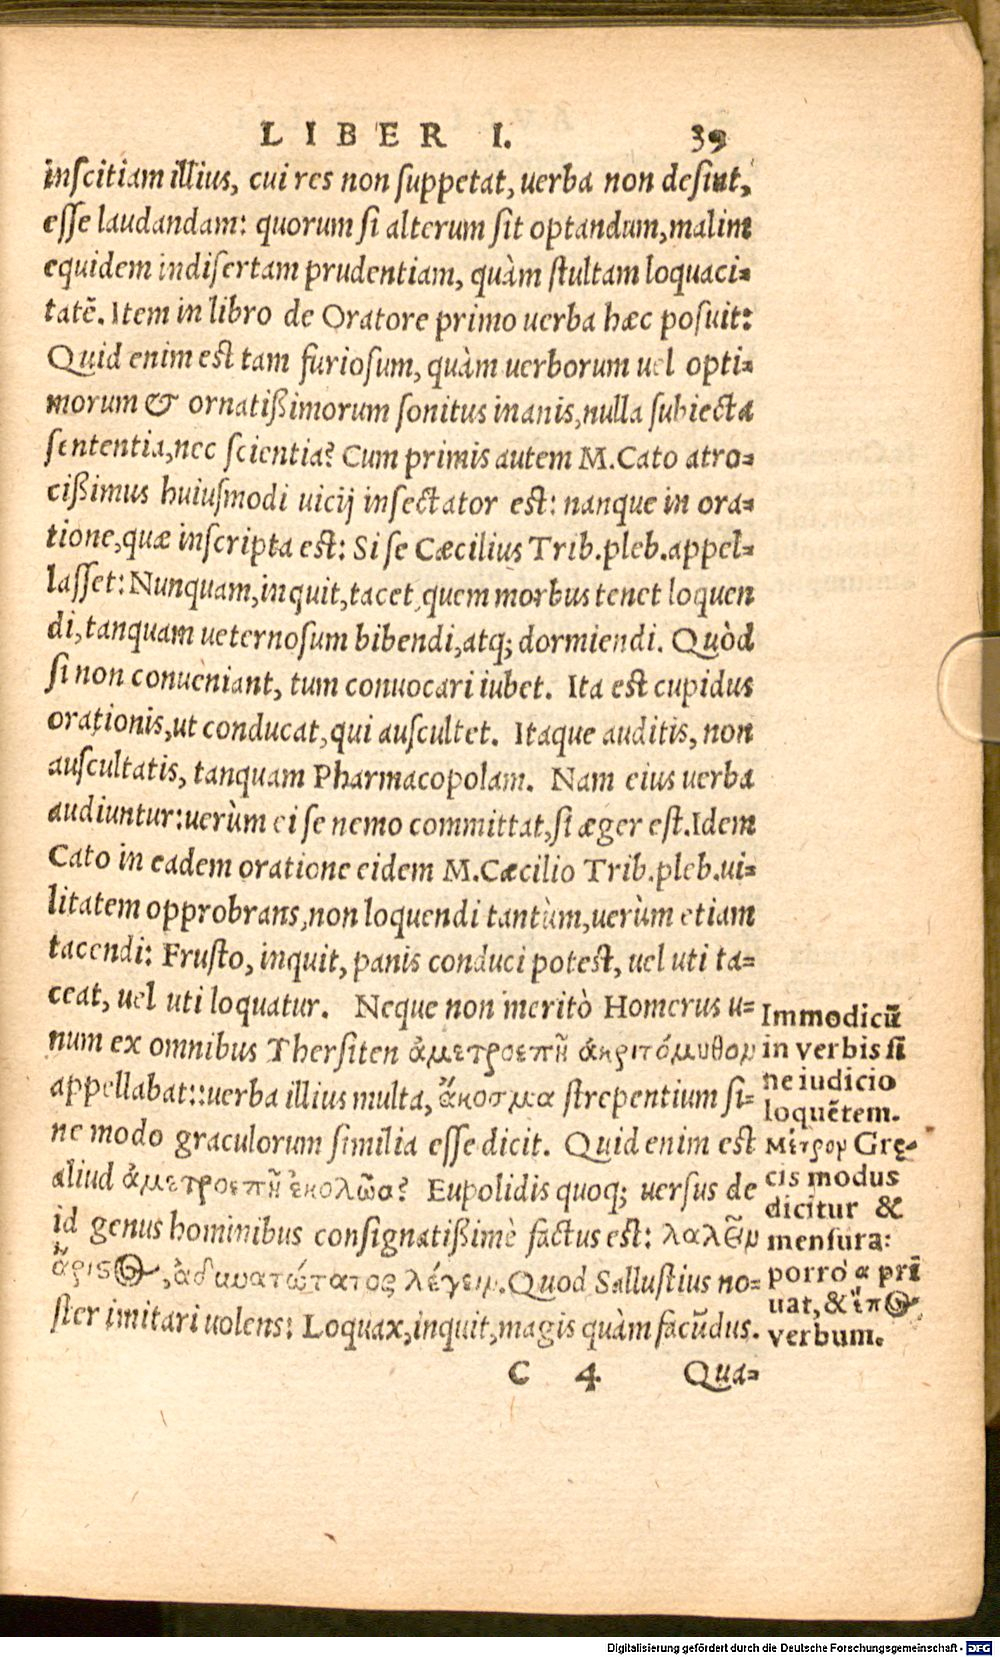 LIBER I. 39
inscitiam illius, cui res non suppetat, uerba non desint,
esse laudandam: quorum si alterum sit optandum, malim
equidem indisertam prudentiam, quàm stultam loquaci-
tatē. Item in libro de Oratore primo uerba hæc posuit:
Quid enim est tam furiosum, quàm uerborum uel opti-
morum & ornatißimorum sonitus inanis, nulla subiecta
sententia, nec scientia? Cum primis autem M. Cato atro-
cißimus huiusmodi uicij insectator est: nanque in ora-
tione, quæ inscripta est: Si se Cæcilius Trib. pleb. appel-
lasset: Nunquam, inquit, tacet, quem morbus tenet loquen
di, tanquam ueternosum bibendi, atq; dormiendi. Quòd
si non conueniant, tum conuocari iubet. Ita est cupidus
orationis, ut conducat, qui auscultet. Itaque auditis, non
auscultatis, tanquam Pharmacopolam. Nam eius uerba
audiuntur: uerùm ei se nemo committat, si æger est. Idem
Cato in eadem oratione eidem M. Cæcilio Trib. pleb. ui-
litatem opprobrans, non loquendi tantùm, uerùm etiam
tacendi: Frusto, inquit, panis conduci potest, uel uti ta-
ceat, uel uti loquatur. Neque non meritò Homerus u-
num ex omnibus Thersiten ἀμετροεπῆ ἀκριτόμυθον
appellabat:: uerba illius multa, ἄκοσμα strepentium si-
ne modo graculorum similia esse dicit. Quid enim est
aliud ἀμετροεπῆ ἐκολῶα? Eupolidis quoq; uersus de
id genus hominibus consignatißimè factus est: λαλεῖν
ἄριστος, ἀδυνατώτατος λέγειν. Quod Sallustius no-
ster imitari uolens: Loquax, inquit, magis quàm facūdus.
C 4 Qua-
Immodicū
in verbis si
ne iudicio
loquētem.
Μέτρον Grę-
cis modus
dicitur &
mensura:
porrò α pri
uat, & ἔπος
verbum.
Digitalisierung gefördert durch die Deutsche Forschungsgemeinschaft - DFG